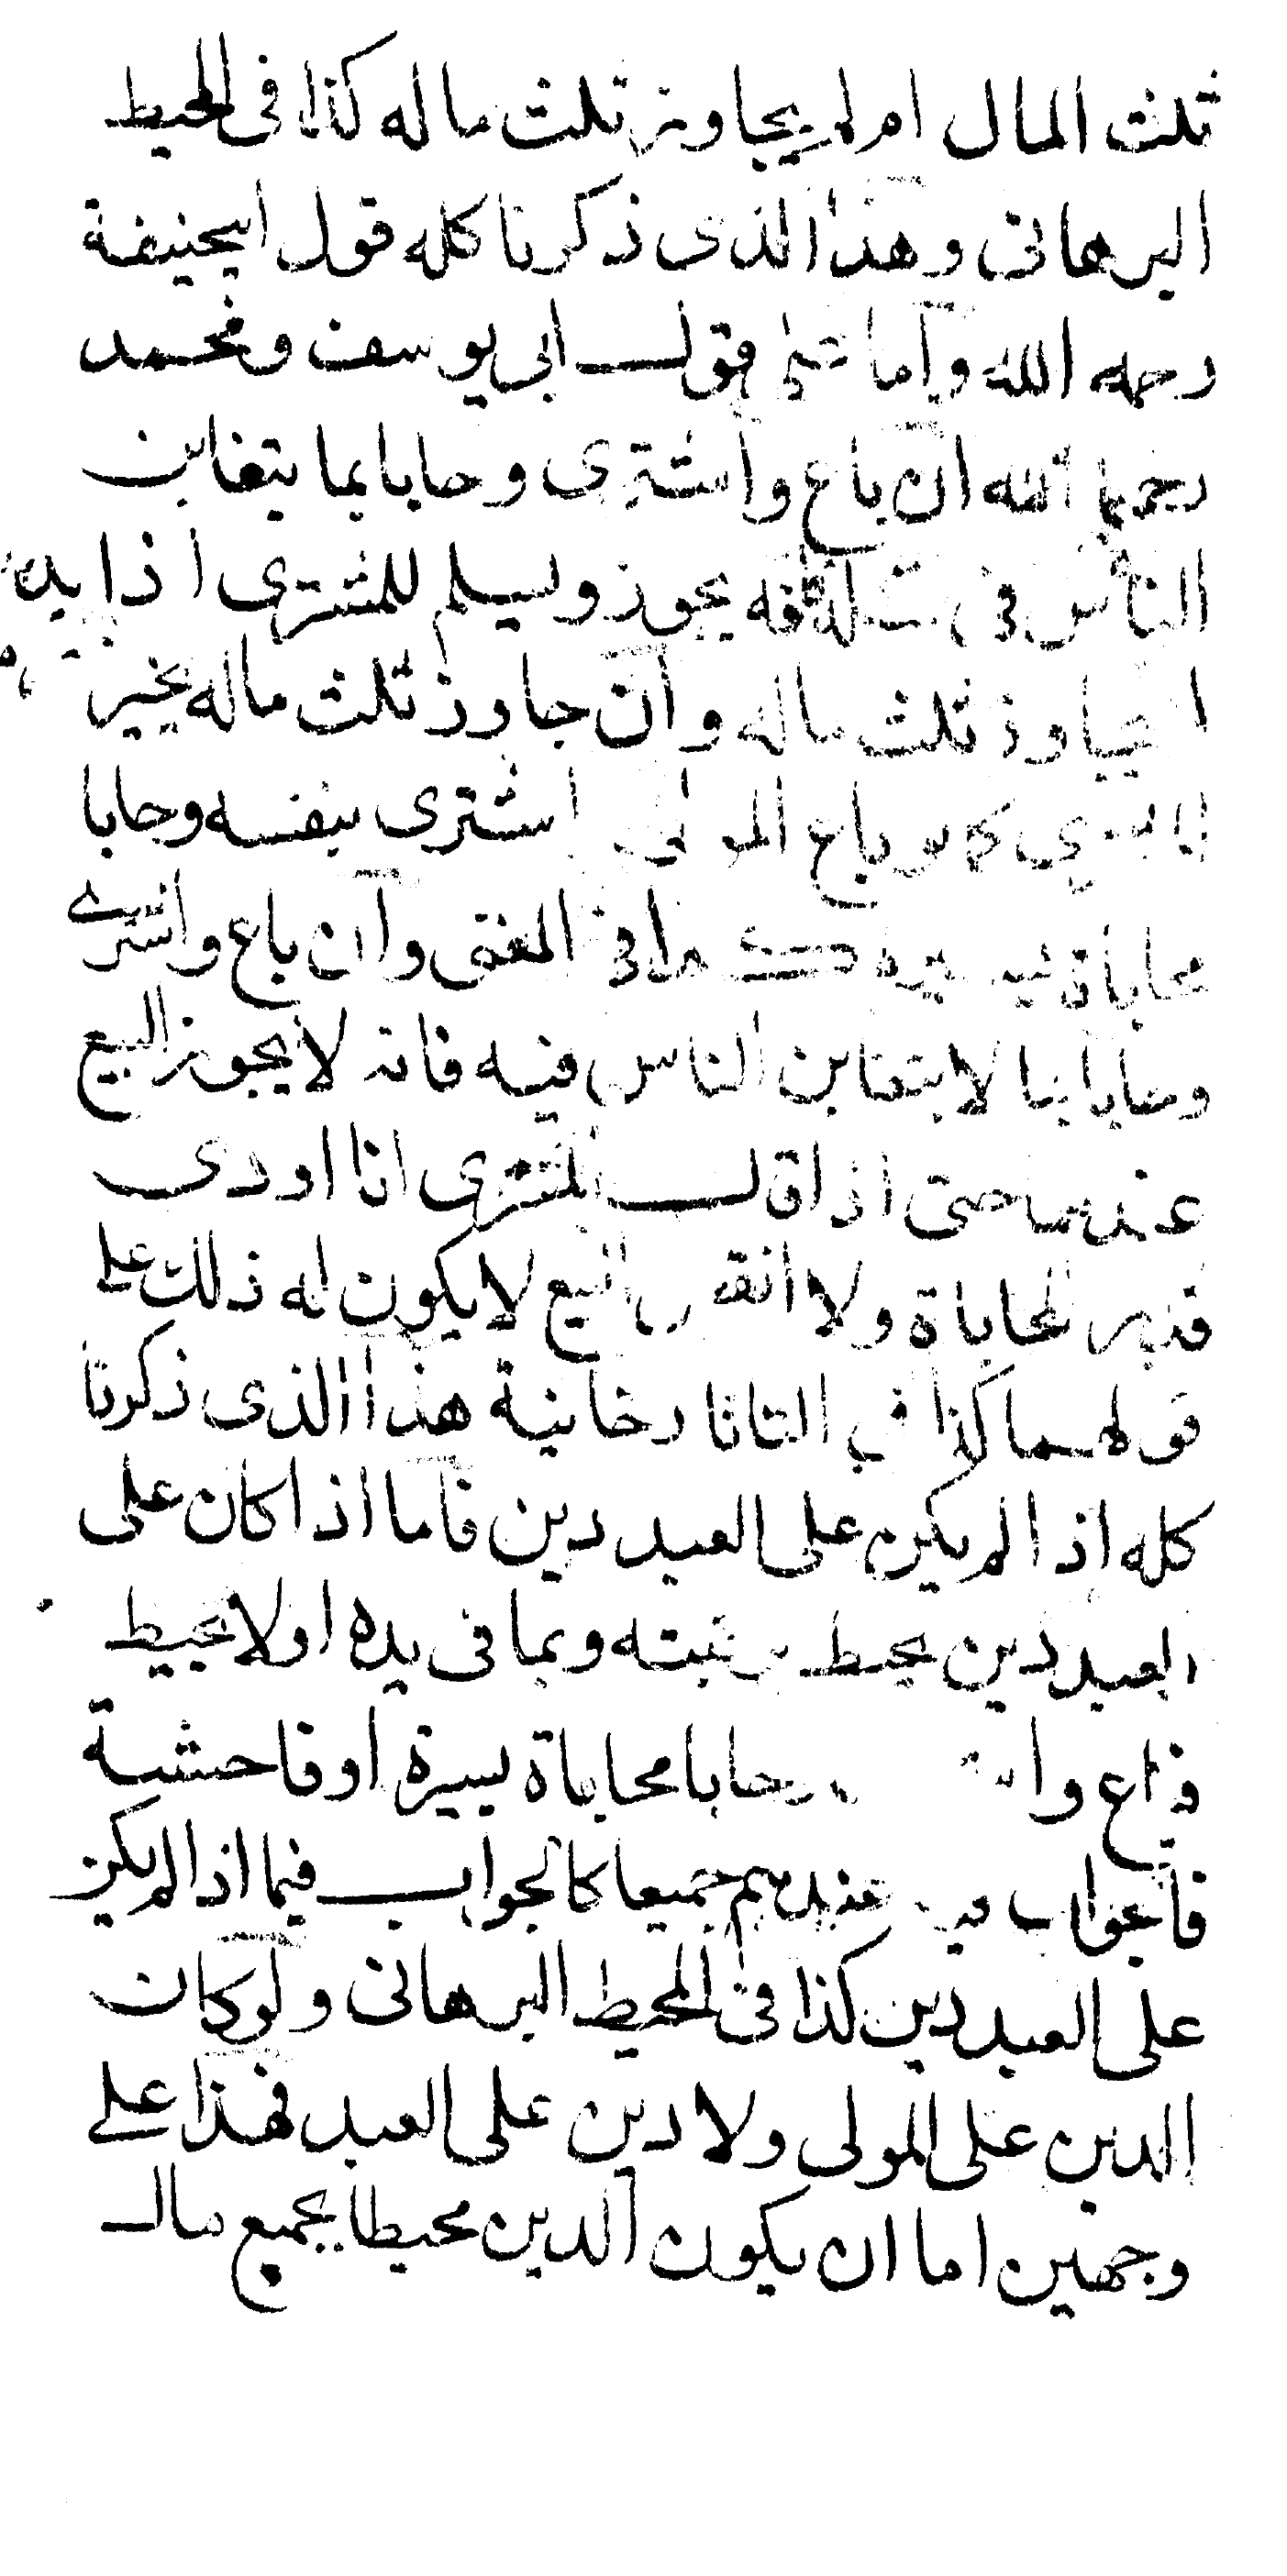 ثلث المال ام لم يجاوز ثلث ماله كذا فى المحيط
البرهانى وهذا الذى ذكرنا كله قول ابيحنيفة
رحمه الله وأما على قول ابى يوسف ومحمد
رحمهما الله ان باع واشترى وحابا بما يتغابن
الناس فى يجوز ويسلم للمشترى اذا
يجاوز ثلث ماله وان جاوز ثلث ماله يخير
المشترى كما لو باع المولى اشترى بنفسه وحابا
محاباة يسيرة هكذا فى المغنى وان باع واشترى
وحابا بما لا يتغابن الناس فيه فانه لا يجوز البيع
عندهما حتى اذا قال المشترى انا اودى
قدر المحاباة ولا انقض البيع لا يكون له ذلك على
قولهما كذا فى التاتارخانية هذا الذى ذكرنا
كله اذا لم يكن على العبد دين فاما اذا كان على
العبد دين يحيط برقبته وبما فى يده اولا يحيط
فباع وحابا محاباة يسيرة او فاحشة
فالجواب فيه عندهم جميعا كالجواب فيما اذا لم يكن
على العبد دين كذا فى المحيط البرهانى ولو كان
الدين على المولى ولا دين على العبد فهذا على
وجهين اما ان يكون الدين محيطا بجميع مال